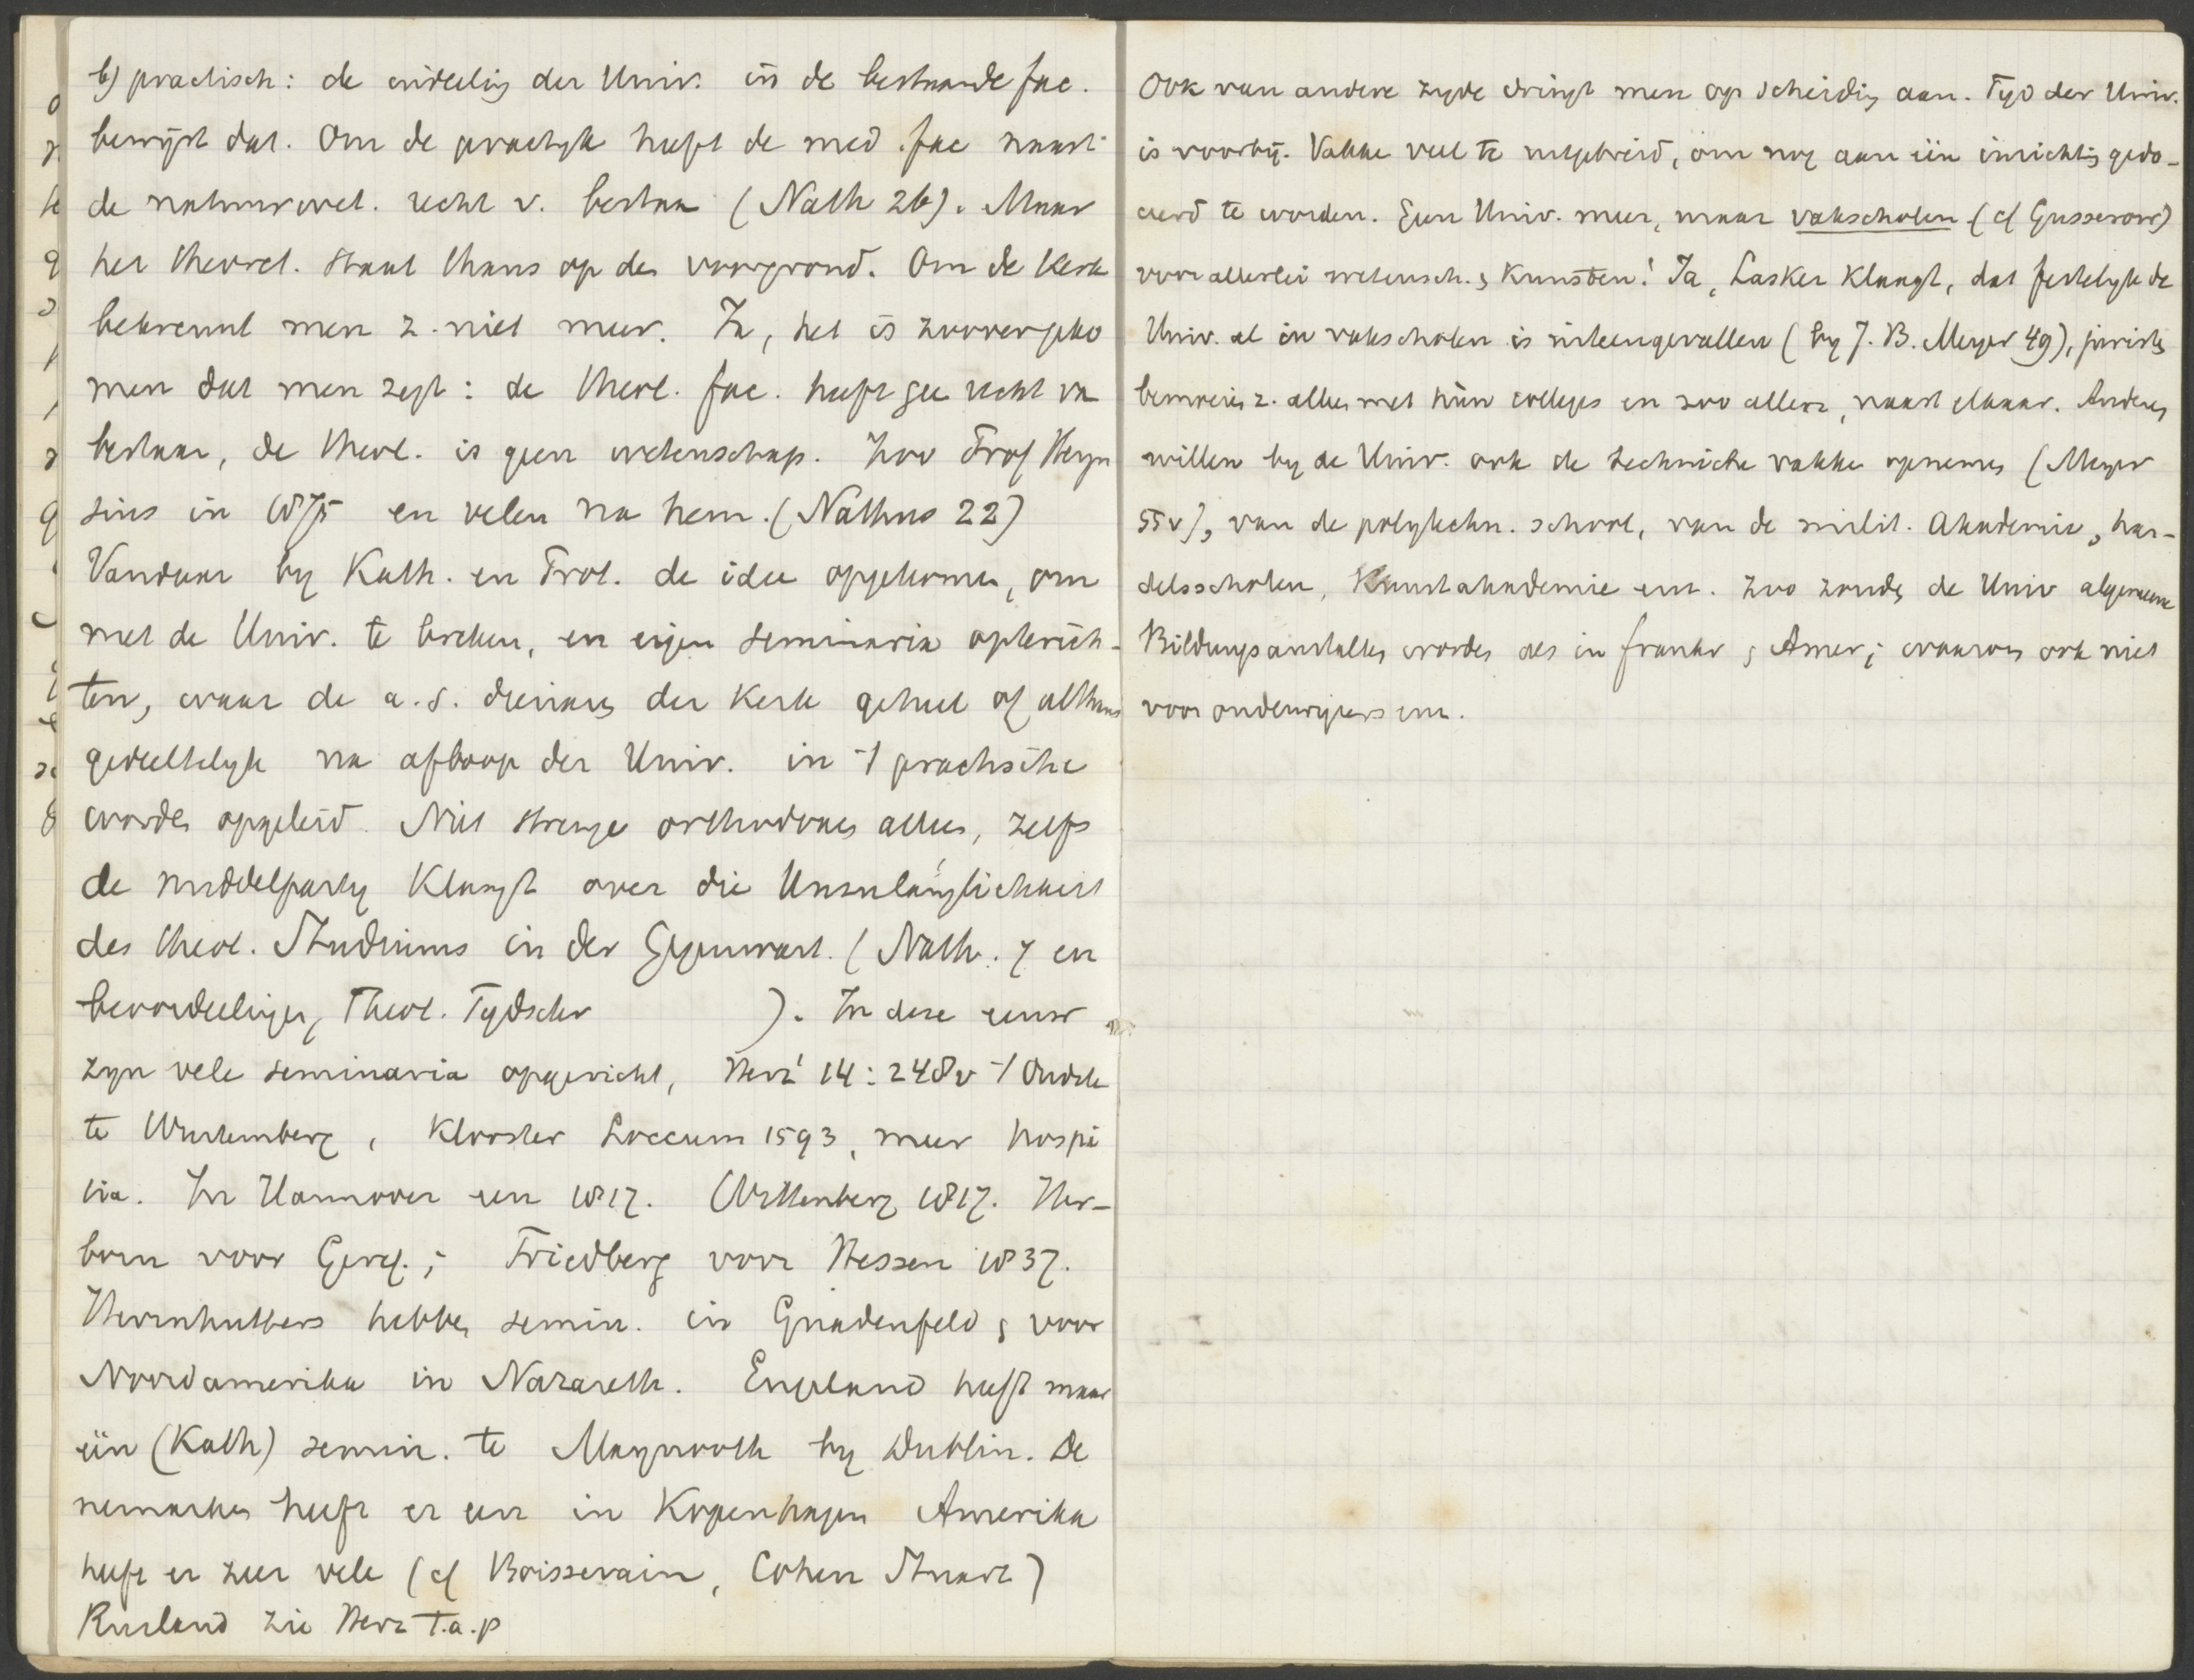 b) practisch: de indeeling der Univ. in de bestaande fac.
bewijst dat. Om de practyk heeft de med. fac naast
de natuurwet. recht v. bestaan (Nath 26). Maar
het theoret. staat thans op den voorgrond. Om de kerk
bekreunt men z. niet meer. Ja, het is zoover geko
men dat men zegt: de theol. fac. heeft gee recht va
bestaan, de theol. is geen wetenschap. Zoo Prof Heyn
sius in 1875 en velen na hem. (Nathus 22)
Vandaar by Kath. en Prot. de idee opgekomen, om
met de Univ. te breken, en eigen seminaria opterich-
ten, waar de a.s. dienaars der Kerk geheel of althans
gedeeltelyk na afloop der Univ. in 't practische
worden opgeleid. Niet strenge orthodoxen alleen, zelfs
de middelparty klaagt over die Unzulänglichkeit
des theol. Studiums in der Gegenwart. (Nath. 7 en
beoordeelingen, Theol. Tydschr ). In deze eeuw
zyn vele seminaria opgericht, Herz' 14:248v 't Oudste
te Wurtemberg, Klooster Loccum 1593, meer hospi
tia. In Hannover een 1817. Wittenberg 1817. Her-
born voor Geref.; Friedberg voor Hessen 1837.
Herrnhutters hebben semin. in Gnadenfeld & voor
Noordamerika in Nazareth. Engeland heeft maar
één (Kath) semin. te Maynooth by Dublin. De
nemarken heeft er een in Kopenhagen Amerika
heeft er zeer vele (cf Boissevain, Cohen Stuart)
Rusland zie Herz t.a.p
Ook van andere zyde dringt men op scheiding aan. Tyd der Univ.
is voorbij. Vakken veel te uitgebreid, om nog aan één inrichting gedo-
ceerd te worden. Geen Univ. meer, maar vakscholen (cf Gusserow)
voor allerlei wetensch. & Kunsten! Ja, Lasker klaagt, dat feitelyk de
Univ. al in vakscholen is uiteengevallen (by J. B. Meyer 49), juristen
bemoeien z. alleen met hún colleges en zoo allen, naast elkaar. Anderen
willen by de Univ. ook de technische vakken opnemen (Meyer
55v), van de polytechn. school, van de milit. Akademie, han-
delsscholen, Kunstakademie enz. Zoo zouden de Univ algemeene
Bildungsanstalten worden als in Frankr & Amer; waarom ook niet
voor onderwijzers enz.